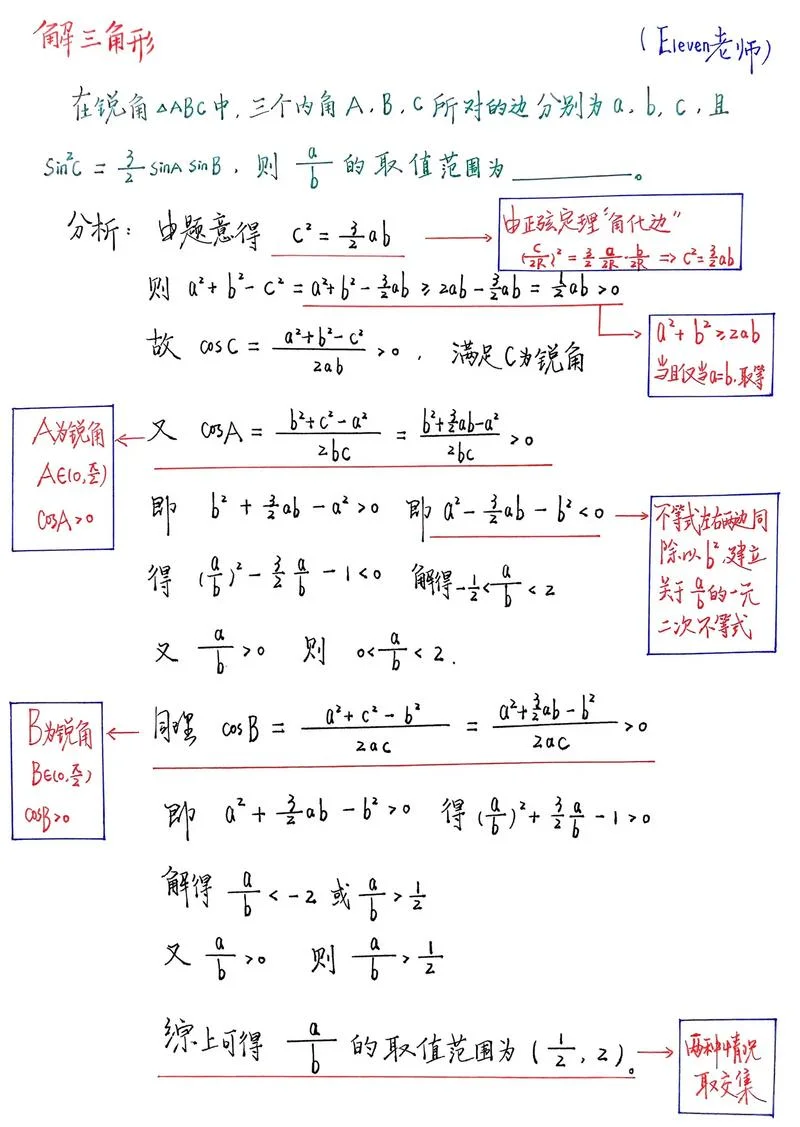 解三角形
(Eleven老师)
在锐角△ABC中,三个内角A,B,C所对的边分别为a,b,c,且
sin²C = 3/2 sinA sinB,则 a/b 的取值范围为________。
分析: 由题意得 c² = 3/2 ab
由正弦定理"角化边"
(c/2R)² = 3/2 a/2R · b/2R => c² = 3/2 ab
则 a²+b²-c² = a²+b²-3/2ab ≥ 2ab-3/2ab = 1/2ab >0
a²+b²≥2ab
当且仅当a=b,取等
故 cosC = (a²+b²-c²)/2ab >0, 满足C为锐角
A为锐角
A∈(0,π/2)
cosA>0
又 cosA = (b²+c²-a²)/2bc = (b²+3/2ab-a²)/2bc >0
即 b²+3/2ab-a²>0 即 a²-3/2ab-b²<0
不等式左右两边同
除以b²,建立
关于a/b的一元
二次不等式
得 (a/b)²-3/2 a/b-1<0 解得-1/2<a/b<2
又 a/b>0 则 0<a/b<2.
B为锐角
B∈(0,π/2)
cosB>0
同理 cosB = (a²+c²-b²)/2ac = (a²+3/2ab-b²)/2ac >0
即 a²+3/2ab-b²>0 得 (a/b)²+3/2 a/b-1>0
解得 a/b<-2 或 a/b>1/2
又 a/b>0 则 a/b>1/2
综上可得 a/b 的取值范围为 (1/2, 2)。
两种情况
取交集